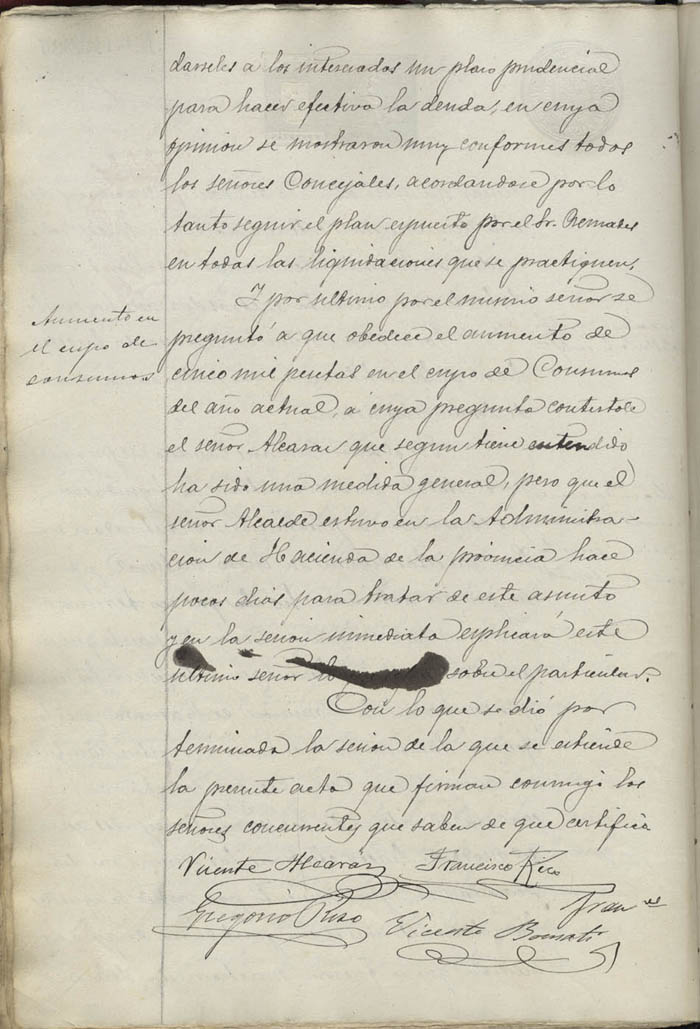 darseles á los interesados un plazo prudencial
para hacer efectiva la deuda, en cuya
opinion se mostraron muy conformes todos
los señores Concejales, acordandose por lo
tanto seguir el plan espuesto por el Sr. Bernabeu
en todas las liquidaciones que se practiquen.
Y por ultimo por el mismo señor se
Aumento en
el cupo de
consumos
preguntó a que obedece el aumento de
cinco mil pesetas en el cupo de Consumos
del año actual, á cuya pregunta contestole
el señor Alcaraz que segun tiene entendido
ha sido una medida general, pero que el
señor Alcalde estuvo en la Administra-
cion de Hacienda de la provincia hace
pocos dias para tratar de este asunto
y en la sesion inmediata esplicará este
ultimo señor lo sobre el particular.
Con lo que se dió por
terminada la sesion de la que se estiende
la presente acta que firman conmigo los
señores concurrentes que saben de que certifico
Vicente Alcaráz Francisco Rico
Gregorio Rico Vicente